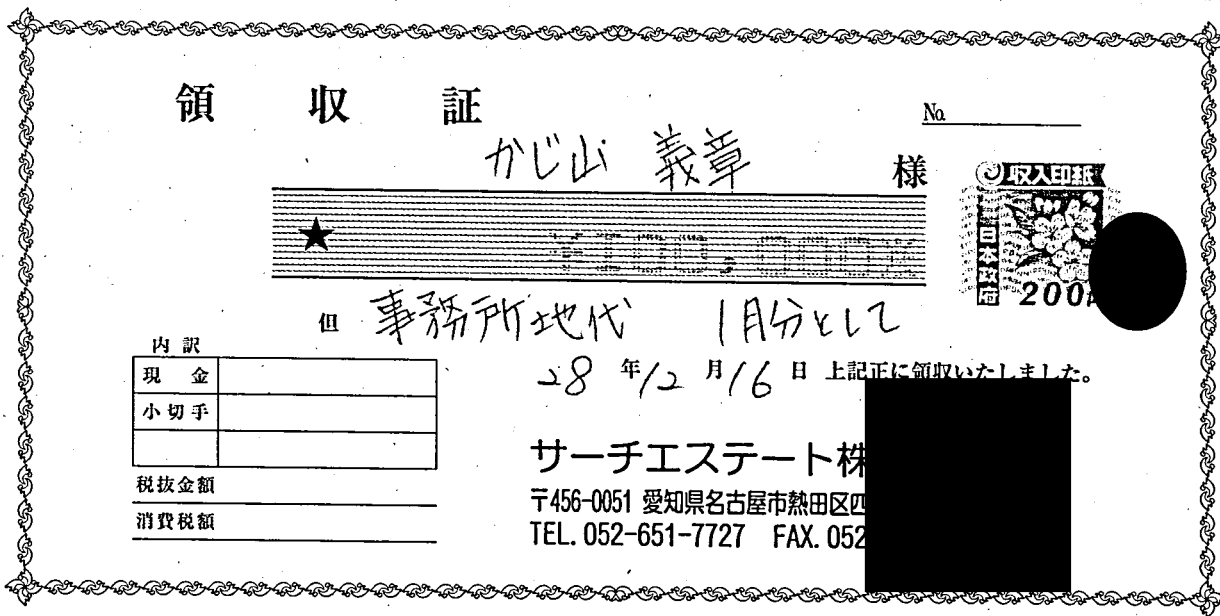 領収証
No.
かじ山 義章 様
★
収入印紙
日本政府
200円
但 事務所地代 1月分として
内訳
28年12月16日 上記正に領収いたしました。
現金
小切手
税抜金額
消費税額
サーチエステート株
〒456-0051 愛知県名古屋市熱田区四
TEL. 052-651-7727 FAX. 052